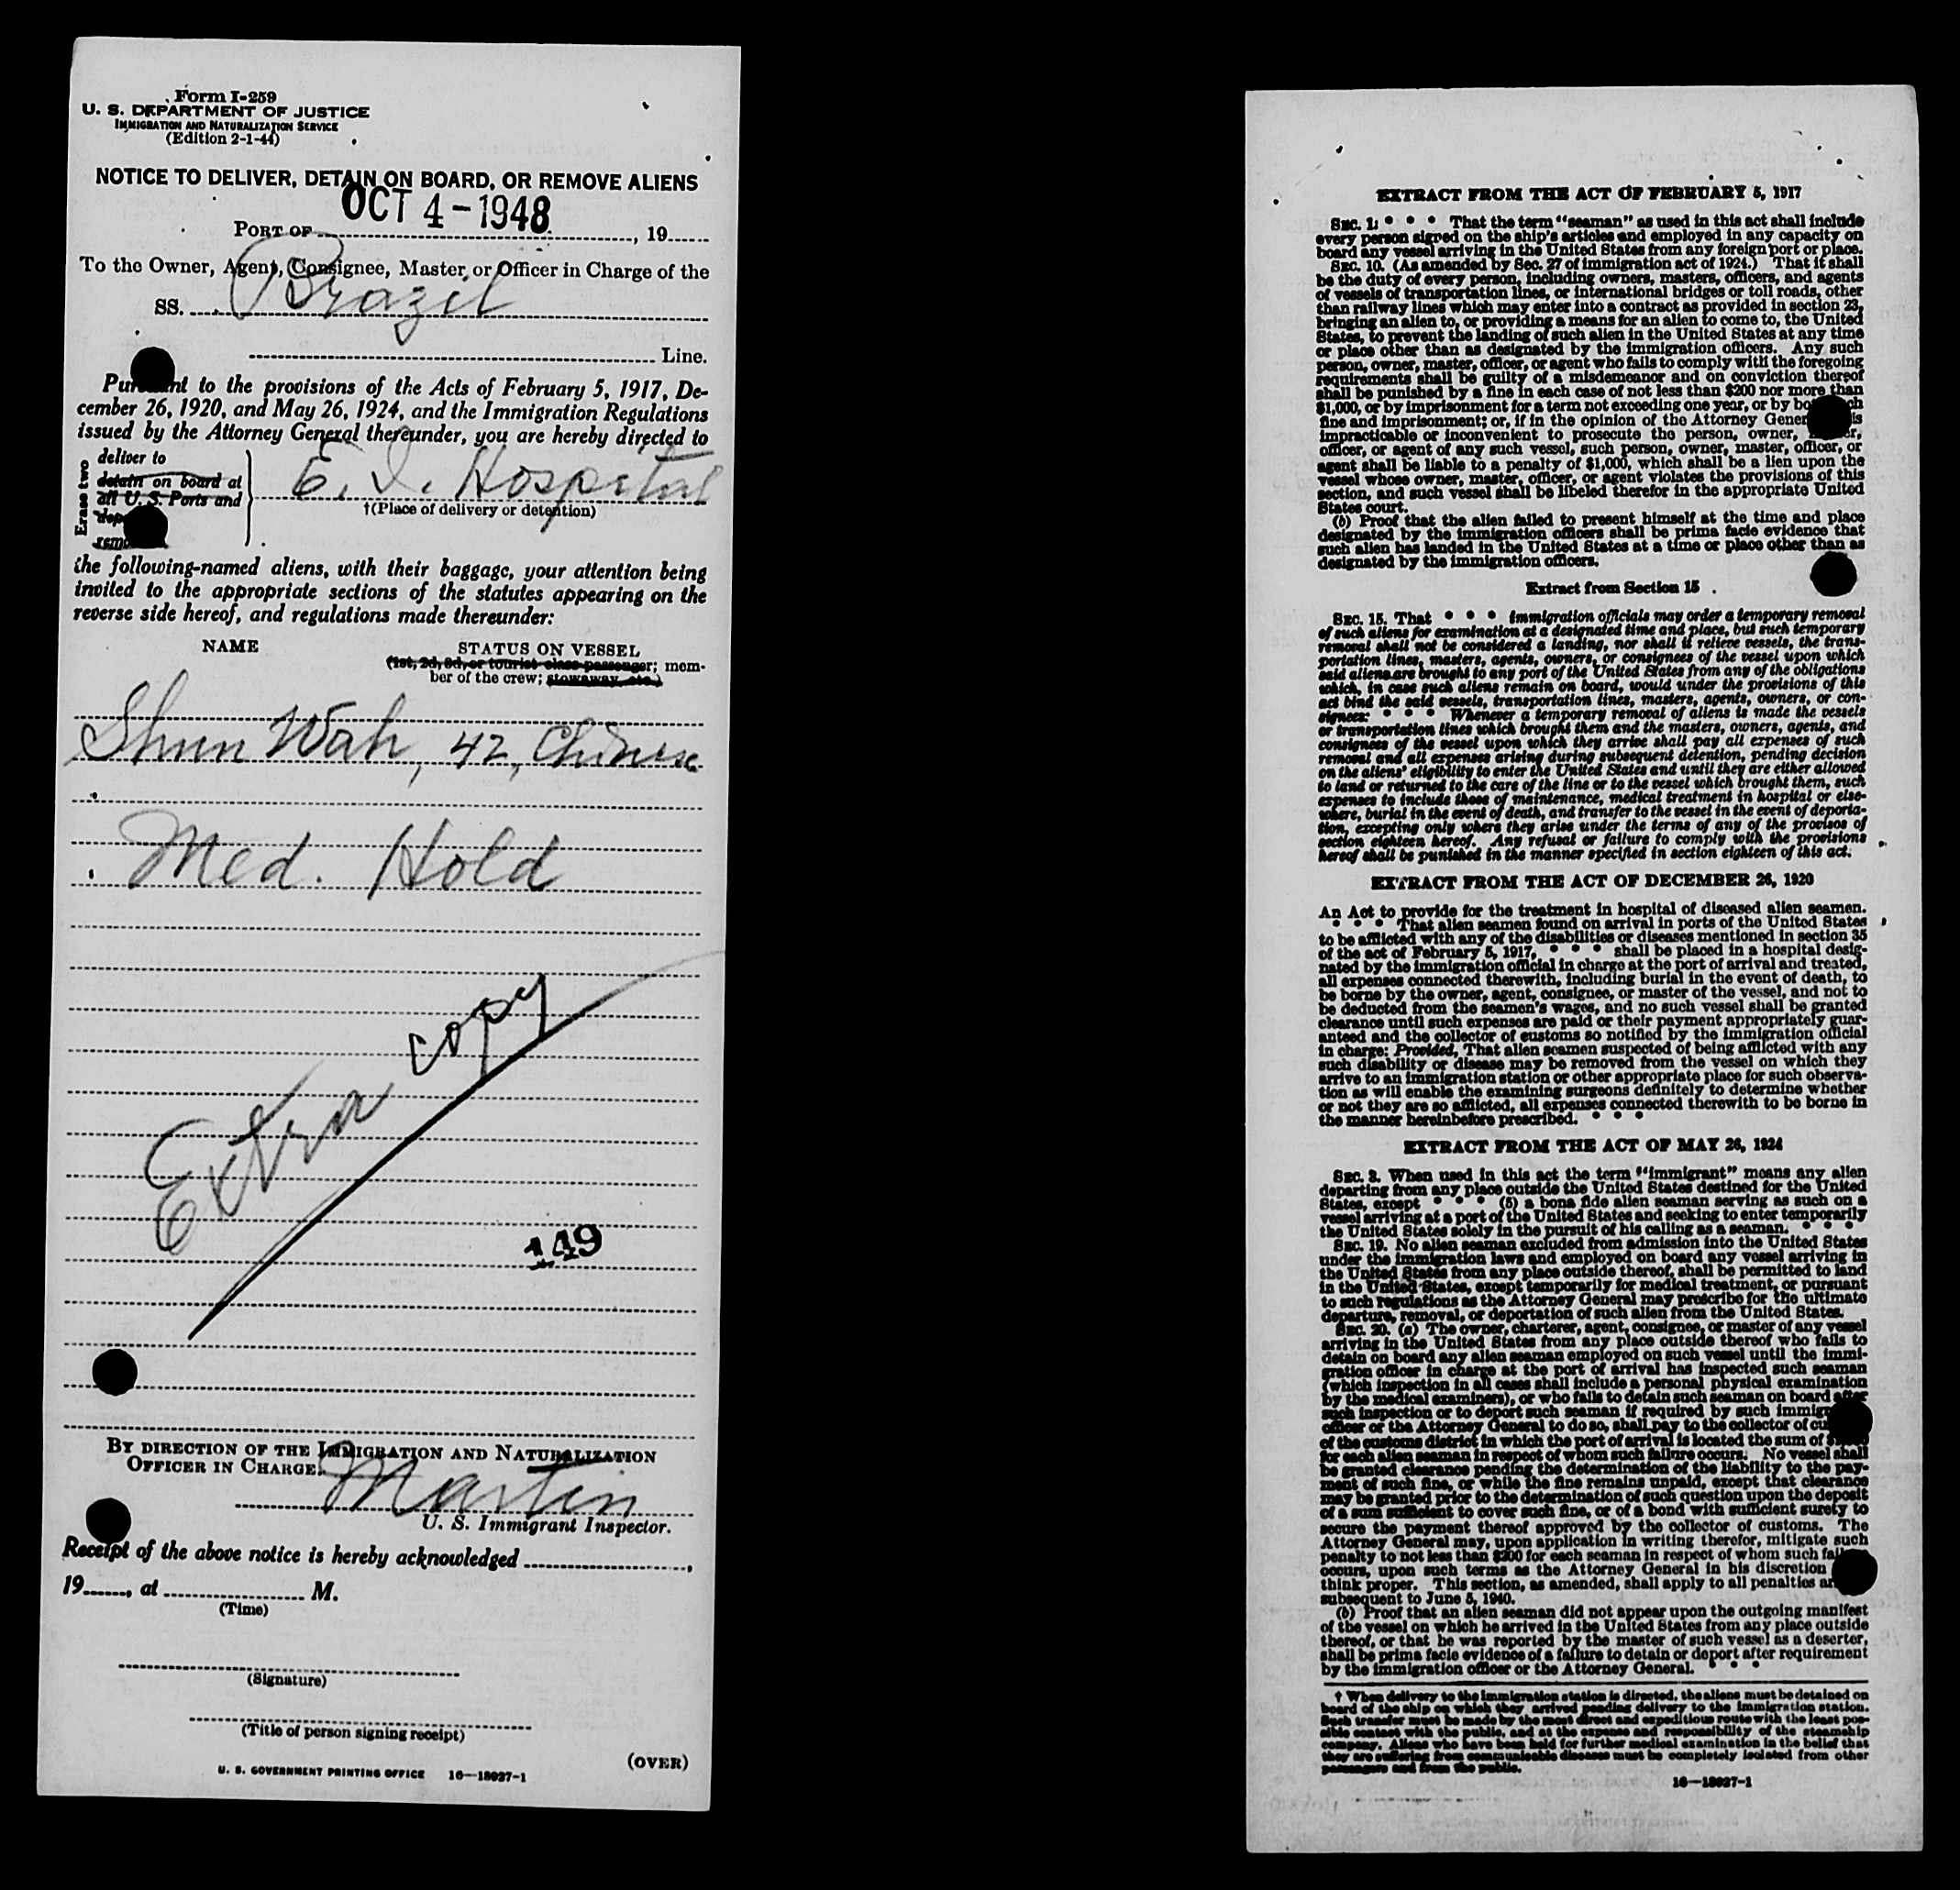 Form I-259
U. S. DEPARTMENT OF JUSTICE
IMMIGRATION AND NATURALIZATION SERVICE
(Edition 2-1-44)
NOTICE TO DELIVER, DETAIN ON BOARD, OR REMOVE ALIENS
OCT 4 - 1948
PORT OF , 19
To the Owner, Agent, Consignee, Master, or Officer in Charge of the
SS. Brazil
Line.
Pursuant to the provisions of the Acts of February 5, 1917, De-
cember 26, 1920, and May 26, 1924, and the Immigration Regulations
issued by the Attorney General thereunder, you are hereby directed to
Erase two
deliver to
detain on board at
all U. S. Ports and
E. I. Hospital
†(Place of delivery or detention)
the following-named aliens, with their baggage, your attention being
invited to the appropriate sections of the statutes appearing on the
reverse side hereof, and regulations made thereunder:
NAME
STATUS ON VESSEL
(1st, 2d, 3d, or tourist class passenger; mem-
ber of the crew; stowaway, etc.)
Shun Wah, 42, Chinese
Med. Hold
Extra copy
149
BY DIRECTION OF THE IMMIGRATION AND NATURALIZATION
OFFICER IN CHARGE.
Martin
U. S. Immigrant Inspector.
Receipt of the above notice is hereby acknowledged ,
19 , at M.
(Time)
(Signature)
(Title of person signing receipt)
(OVER)
U. S. GOVERNMENT PRINTING OFFICE 16—18027-1
EXTRACT FROM THE ACT OF FEBRUARY 5, 1917
SEC. 1: * * * That the term "seaman" as used in this act shall include
every person signed on the ship's articles and employed in any capacity on
board any vessel arriving in the United States from any foreign port or place.
SEC. 10. (As amended by Sec. 27 of immigration act of 1924.) That it shall
be the duty of every person, including owners, masters, officers, and agents
of vessels of transportation lines, or international bridges or toll roads, other
than railway lines which may enter into a contract as provided in section 23,
bringing an alien to, or providing a means for an alien to come to, the United
States, to prevent the landing of such alien in the United States at any time
or place other than as designated by the immigration officers. Any such
person, owner, master, officer, or agent who fails to comply with the foregoing
requirements shall be guilty of a misdemeanor and on conviction thereof
shall be punished by a fine in each case of not less than $200 nor more than
$1,000, or by imprisonment for a term not exceeding one year, or by both such
fine and imprisonment; or, if in the opinion of the Attorney General it is
impracticable or inconvenient to prosecute the person, owner, master,
officer, or agent of any such vessel, such person, owner, master, officer, or
agent shall be liable to a penalty of $1,000, which shall be a lien upon the
vessel whose owner, master, officer, or agent violates the provisions of this
section, and such vessel shall be libeled therefor in the appropriate United
States court.
(b) Proof that the alien failed to present himself at the time and place
designated by the immigration officers shall be prima facie evidence that
such alien has landed in the United States at a time or place other than as
designated by the immigration officers.
Extract from Section 15
SEC. 15. That * * * immigration officials may order a temporary removal
of such aliens for examination at a designated time and place, but such temporary
removal shall not be considered a landing, nor shall it relieve vessels, the trans-
portation lines, masters, agents, owners, or consignees of the vessel upon which
said aliens are brought to any port of the United States from any of the obligations
which, in case such aliens remain on board, would under the provisions of this
act bind the said vessels, transportation lines, masters, agents, owners, or con-
signees: * * * Whenever a temporary removal of aliens is made the vessels
or transportation lines which brought them and the masters, owners, agents, and
consignees of the vessel upon which they arrive shall pay all expenses of such
removal and all expenses arising during subsequent detention, pending decision
on the aliens' eligibility to enter the United States and until they are either allowed
to land or returned to the care of the line or to the vessel which brought them, such
expenses to include those of maintenance, medical treatment in hospital or else-
where, burial in the event of death, and transfer to the vessel in the event of deporta-
tion, excepting only where they arise under the terms of any of the provisos of
section eighteen hereof. Any refusal or failure to comply with the provisions
hereof shall be punished in the manner specified in section eighteen of this act.
EXTRACT FROM THE ACT OF DECEMBER 26, 1920
An Act to provide for the treatment in hospital of diseased alien seamen.
* * * That alien seamen found on arrival in ports of the United States
to be afflicted with any of the disabilities or diseases mentioned in section 35
of the act of February 5, 1917, * * * shall be placed in a hospital desig-
nated by the immigration official in charge at the port of arrival and treated,
all expenses connected therewith, including burial in the event of death, to
be borne by the owner, agent, consignee, or master of the vessel, and not to
be deducted from the seamen's wages, and no such vessel shall be granted
clearance until such expenses are paid or their payment appropriately guar-
anteed and the collector of customs so notified by the immigration official
in charge: Provided, That alien seamen suspected of being afflicted with any
such disability or disease may be removed from the vessel on which they
arrive to an immigration station or other appropriate place for such observa-
tion as will enable the examining surgeons definitely to determine whether
or not they are so afflicted, all expenses connected therewith to be borne in
the manner hereinbefore prescribed. * * *
EXTRACT FROM THE ACT OF MAY 26, 1924
SEC. 3. When used in this act the term "immigrant" means any alien
departing from any place outside the United States destined for the United
States, except * * * (5) a bona fide alien seaman serving as such on a
vessel arriving at a port of the United States and seeking to enter temporarily
the United States solely in the pursuit of his calling as a seaman. * * *
SEC. 19. No alien seaman excluded from admission into the United States
under the immigration laws and employed on board any vessel arriving in
the United States from any place outside thereof, shall be permitted to land
in the United States, except temporarily for medical treatment, or pursuant
to such regulations as the Attorney General may prescribe for the ultimate
departure, removal, or deportation of such alien from the United States.
SEC. 20. (a) The owner, charterer, agent, consignee, or master of any vessel
arriving in the United States from any place outside thereof who fails to
detain on board any alien seaman employed on such vessel until the immi-
gration officer in charge at the port of arrival has inspected such seaman
(which inspection in all cases shall include a personal physical examination
by the medical examiners), or who fails to detain such seaman on board after
such inspection or to deport such seaman if required by such immigration
officer or the Attorney General to do so, shall pay to the collector of customs
of the customs district in which the port of arrival is located the sum of
for each alien seaman in respect of whom such failure occurs. No vessel shall
be granted clearance pending the determination of the liability to the pay-
ment of such fine, or while the fine remains unpaid, except that clearance
may be granted prior to the determination of such question upon the deposit
of a sum sufficient to cover such fine, or of a bond with sufficient surety to
secure the payment thereof approved by the collector of customs. The
Attorney General may, upon application in writing therefor, mitigate such
penalty to not less than $200 for each seaman in respect of whom such failure
occurs, upon such terms as the Attorney General in his discretion
think proper. This section, as amended, shall apply to all penalties
subsequent to June 5, 1940.
(b) Proof that an alien seaman did not appear upon the outgoing manifest
of the vessel on which he arrived in the United States from any place outside
thereof, or that he was reported by the master of such vessel as a deserter,
shall be prima facie evidence of a failure to detain or deport after requirement
by the immigration officer or the Attorney General. * * *
† When delivery to the immigration station is directed, the aliens must be detained on
board of the ship on which they arrived pending delivery to the immigration station.
Such transfer must be made by the most direct and expeditious route with the least pos-
sible contact with the public, and at the expense and responsibility of the steamship
company. Aliens who have been held for further medical examination in the belief that
they are suffering from communicable diseases must be completely isolated from other
passengers and from the public.
16—18027-1